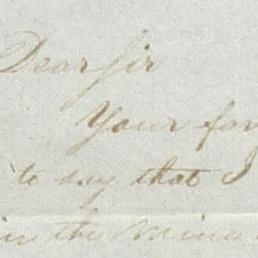 Dear Sir
Your fav
to say that I
in the mine